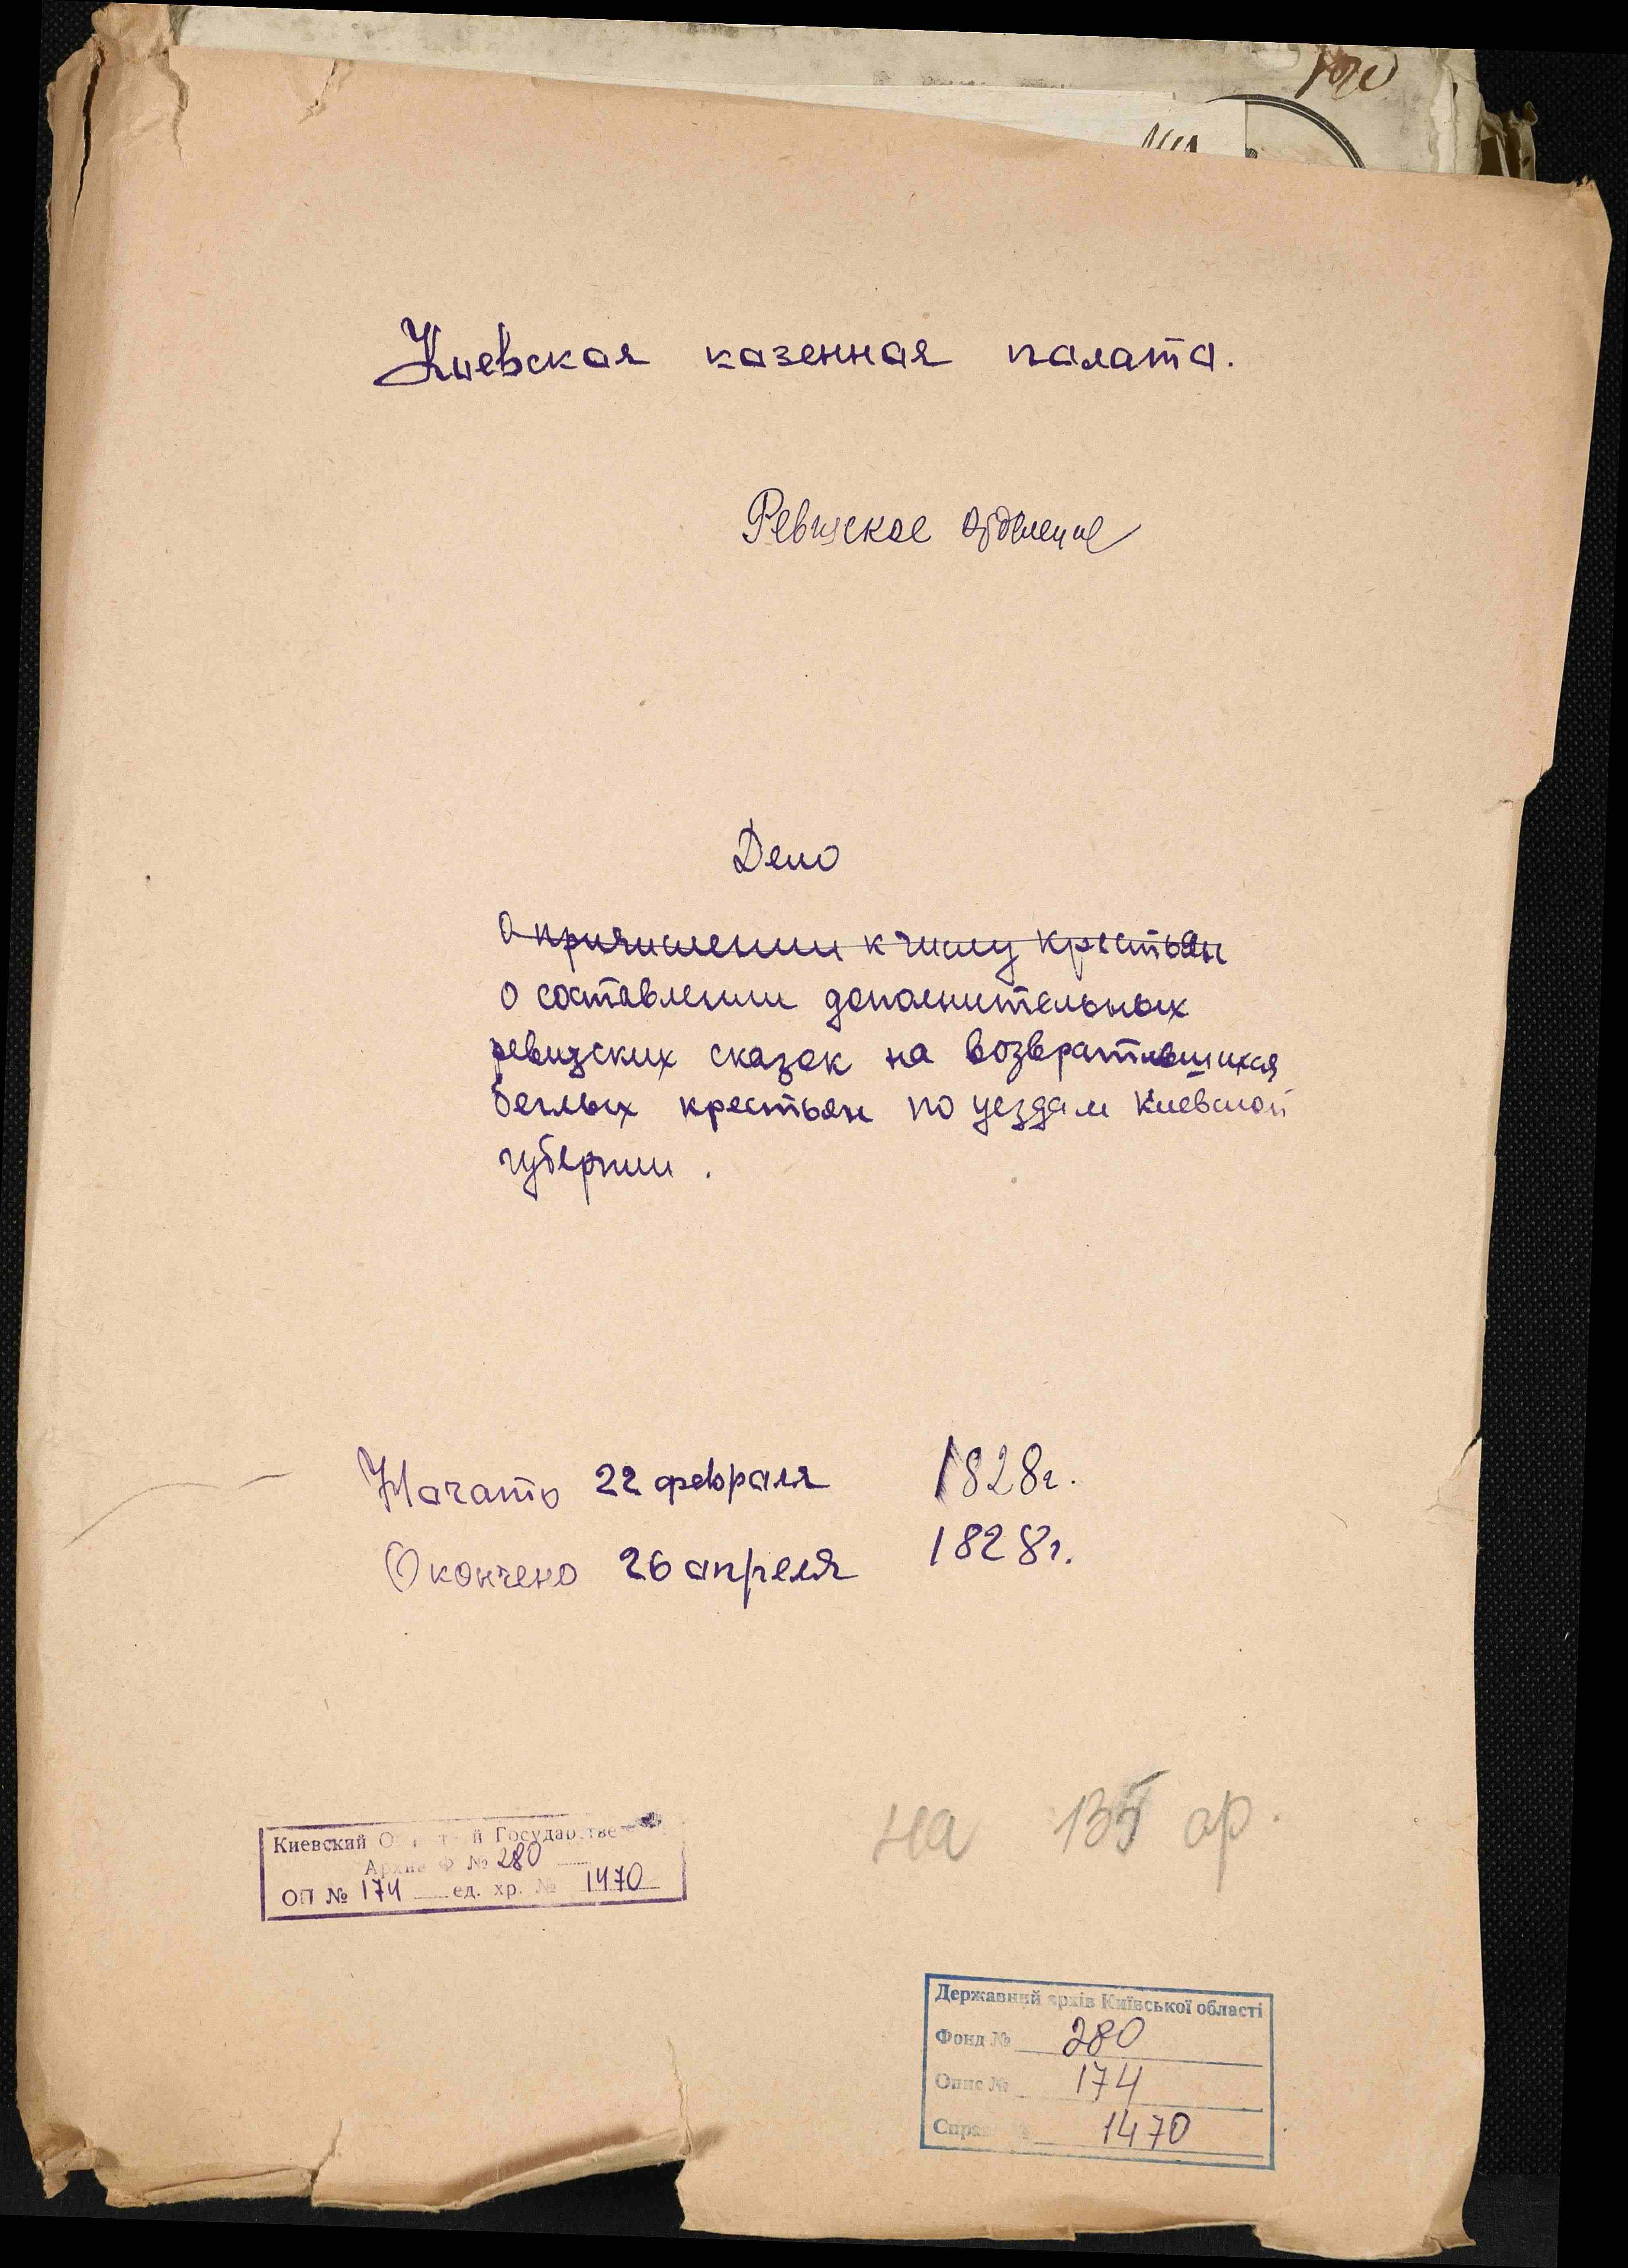 Киевская казенная палата.
Ревизское отделение
Дело
О причислении к числу крестьян
о составлении дополнительных
ревизских сказок на возвратившихся
беглых крестьян по уездам Киевской
губернии.
Начато 22 февраля 1828г.
Окончено 26 апреля 1828г.
на 135 ар.
Киевский Областной Государстве
Архив Ф № 280
ОП № 174 ед. хр. № 1470
Державний архів Київської області
Фонд № 280
Опис № 174
Справа № 1470